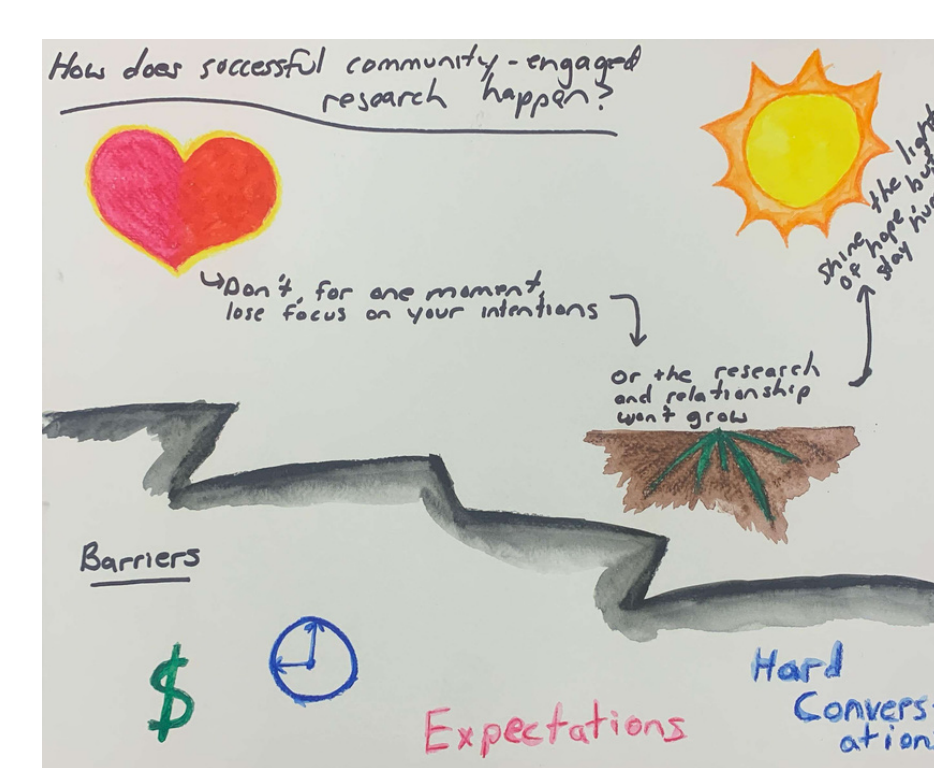 How does successful community-engaged
research happen?
Don't, for one moment,
lose focus on your intentions
or the research
and relationship
won't grow
shine the light
of hope but
stay
Barriers
$
Expectations
Hard
Convers-
ation